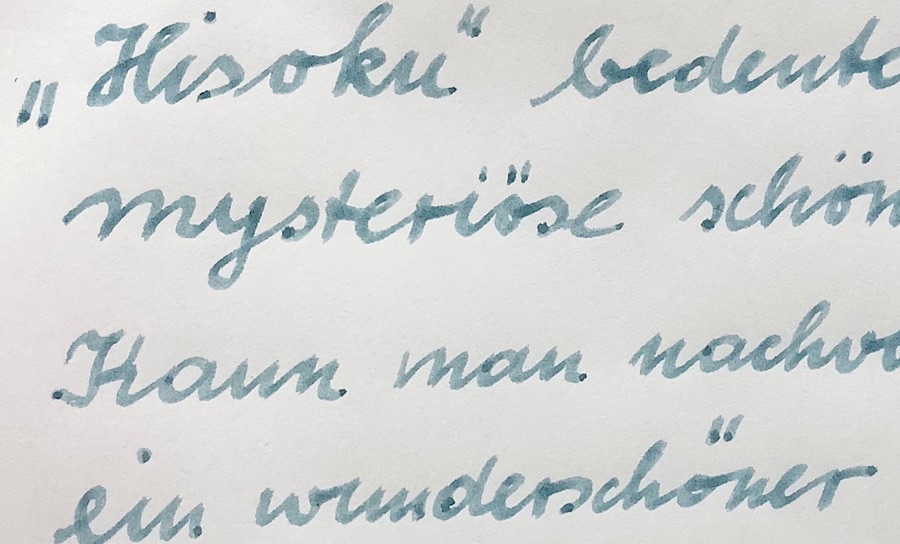 „Hisoku“ bedeute
mysteriöse schön
Kann man nachvo
ein wunderschöner